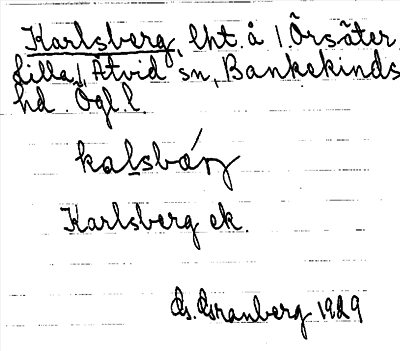 Karlsberg, lht. å 1. Örsäter,
Lilla, Åtvid sn, Bankekinds
hd. Ögl. l.
Karlsberg ek.
G. Granberg 1929